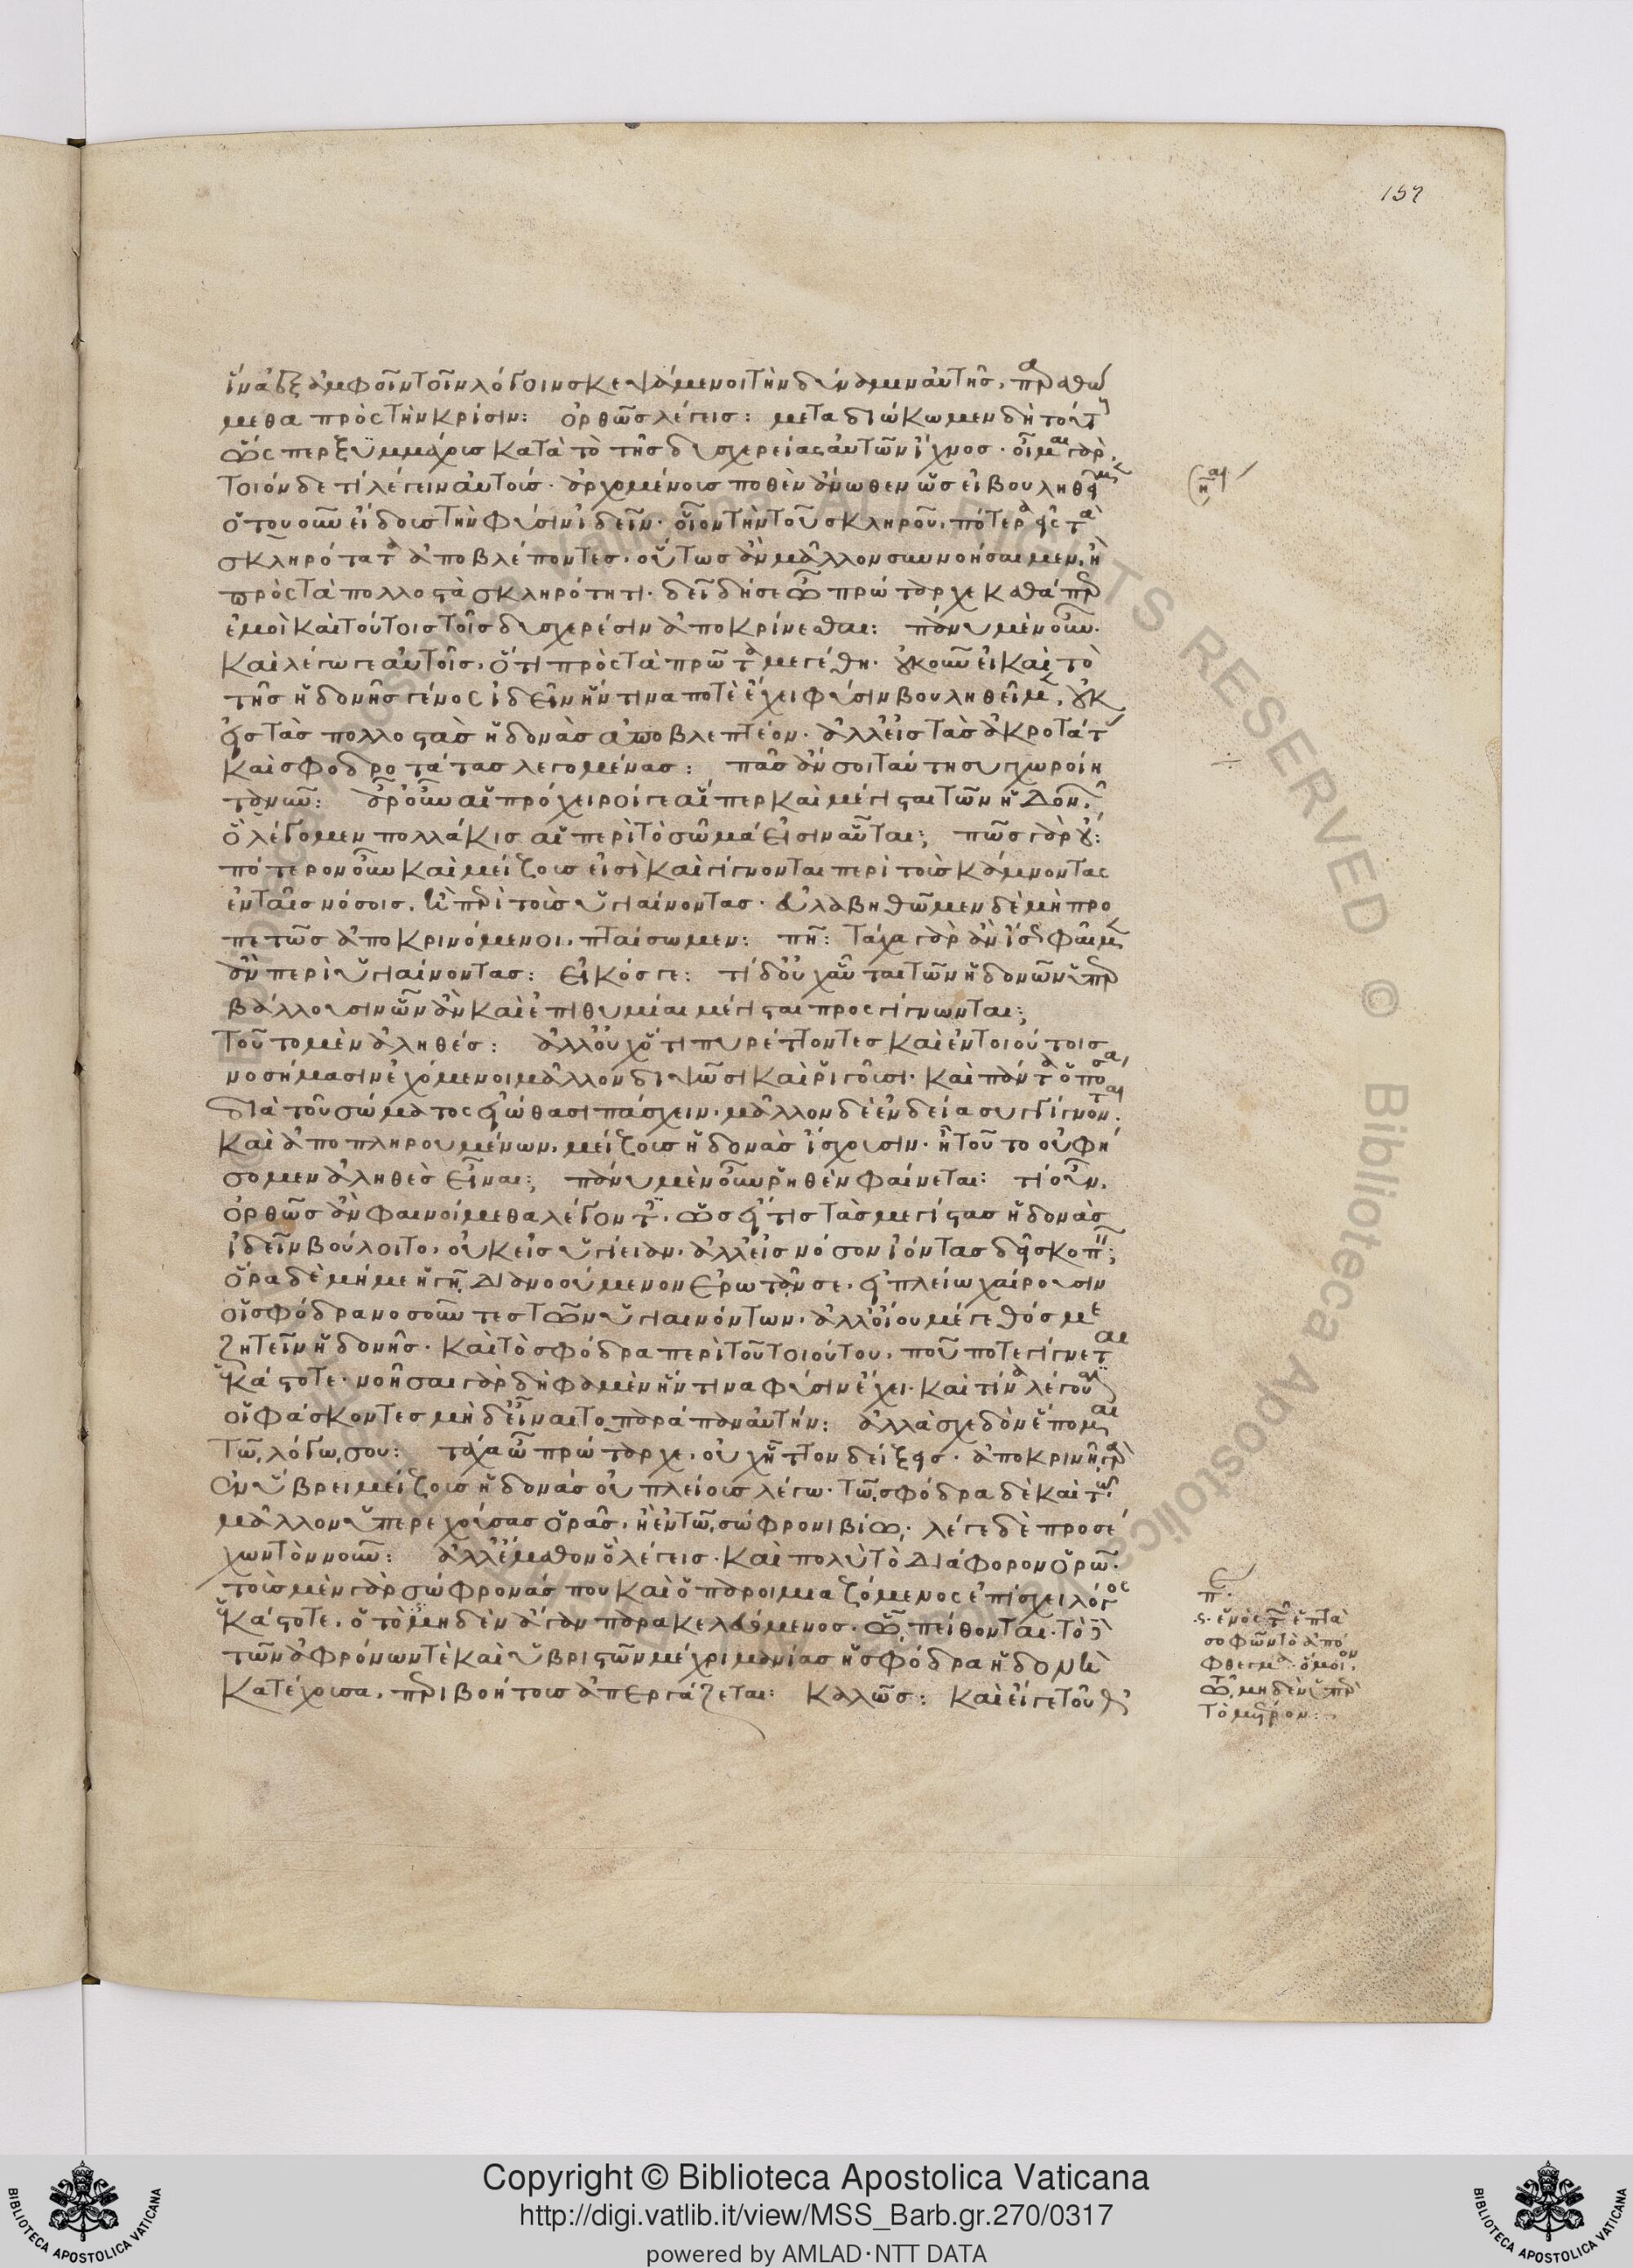 159
ἵνα ἐξ ἀμφοῖν τοῖν λόγοιν σκεψάμενοι τὴν δύναμιν αὐτῆς, παραθώ
μεθα πρὸς τὴν κρίσιν: ὀρθῶς λέγεις: μεταδιώκωμεν δὴ τούτους
ὥσπερ ξυμμάχους κατὰ τὸ τῆς δυσχερείας αὐτῶν ἴχνος. οἶμαι γὰρ
τοιόνδε τι λέγειν αὐτούς. ἀρχομένους ποθὲν ἄνωθεν ὡς εἰ βουληθεῖμεν
ὅτου οὖν εἴδους τὴν φύσιν ἰδεῖν. οἷον τὴν τοῦ σκληροῦ, πότερον εἰς τὰ
σκληρότατα ἀποβλέποντες, οὕτως ἂν μᾶλλον συννοήσαιμεν, ἢ
πρὸς τὰ πολλοστὰ σκληρότητι. δεῖ δή σε ὦ πρώταρχε καθάπερ
ἐμοὶ καὶ τούτοις τοῖς δυσχερέσιν ἀποκρίνεσθαι: πάνυ μὲν οὖν.
καὶ λέγω γε αὐτοῖς, ὅτι πρὸς τὰ πρῶτα μεγέθη. οὐκοῦν εἰ καὶ τὸ
τῆς ἡδονῆς γένος ἰδεῖν ἥντινά ποτε ἔχει φύσιν βουληθεῖμεν, οὐκ
εἰς τὰς πολλοστὰς ἡδονὰς ἀποβλεπτέον. ἀλλ' εἰς τὰς ἀκροτάτας
καὶ σφοδροτάτας λεγομένας: πᾶς ἄν σοι ταύτῃ συγχωροίη
τὰ νῦν: ἆρ' οὖν αἱ πρόχειροί γε αἵπερ καὶ μέγισται τῶν ἡδονῶν,
ὃ λέγομεν πολλάκις αἱ περὶ τὸ σῶμά εἰσιν αὗται; πῶς γὰρ οὔ:
πότερον οὖν καὶ μείζους εἰσὶ καὶ γίγνονται περὶ τοὺς κάμνοντας
ἐν ταῖς νόσοις, ἢ περὶ τοὺς ὑγιαίνοντας. εὐλαβηθῶμεν δὲ μὴ προ
πετῶς ἀποκρινόμενοι, πταίσωμεν: πῆ: τάχα γὰρ ἂν ἴσως φαῖμεν
ἂν περὶ ὑγιαίνοντας: εἰκός γε: τί δ' οὐχ αὗται τῶν ἡδονῶν ὑπερ
βάλλουσιν ὧν ἂν καὶ ἐπιθυμίαι μέγισται προσγίγνωνται;
τοῦτο μὲν ἀληθές: ἀλλ' οὐχ ὅτι πυρέττοντες καὶ ἐν τοιούτοις
νοσήμασιν ἐχόμενοι μᾶλλον διψῶσι καὶ ῥιγοῦσι. καὶ πάντα ὁπόσα
διὰ τοῦ σώματος εἰώθασι πάσχειν. μᾶλλον δὲ ἐνδείᾳ συγγίγνονται.
καὶ ἀποπληρουμένων, μείζους ἡδονὰς ἴσχουσιν. ἢ τοῦτο οὐ φή
σομεν ἀληθὲς εἶναι; πάνυ μὲν οὖν ῥηθὲν φαίνεται: τί οὖν.
ὀρθῶς ἂν φαινοίμεθα λέγοντες. ὡς εἴ τις τὰς μεγίστας ἡδονὰς
ἰδεῖν βούλοιτο, οὐκ εἰς ὑγίειαν, ἀλλ' εἰς νόσον ἰόντας δεῖ σκοπεῖν;
ὅρα δὲ μή με ἡγῇ διανοούμενον ἐρωτᾶν σε, εἰ πλείω χαίρουσιν
οἱ σφόδρα νοσοῦντες τῶν ὑγιαινόντων. ἀλλ' οἴου μέγεθός με
ζητεῖν ἡδονῆς. καὶ τὸ σφόδρα περὶ τοῦ τοιούτου, ποῦ ποτε γίγνεται
ἑκάστοτε. νοῆσαι γὰρ δή φαμεν ἥντινα φύσιν ἔχει. καὶ τίνα λέγουσιν
οἱ φάσκοντες μηδ' εἶναι τὸ παράπαν αὐτήν: ἀλλὰ σχεδὸν ἕπομαι
τῷ λόγῳ σου: τάχα ὦ πρώταρχε, οὐχ ἧττον δείξεις. ἀποκρινῇ γὰρ
ἐν ὕβρει μείζους ἡδονάς οὐ πλείους λέγω. τῷ σφόδρα δὲ καὶ τῷ
μᾶλλον ὑπερεχούσας ὁρᾷς, ἢ ἐν τῷ σώφρονι βίῳ; λέγε δὲ προσέ
χων τὸν νοῦν: ἀλλ' ἔμαθον ὃ λέγεις. καὶ πολὺ τὸ διάφορον ὁρῶ.
τοὺς μὲν γὰρ σώφρονάς που καὶ ὁ παροιμιαζόμενος ἐπίσχει λόγος
ἑκάστοτε, ὁ τὸ μηδὲν ἄγαν παρακελευόμενος. ᾧ πείθονται. τὸ δὲ
τῶν ἀφρόνων τὲ καὶ ὑβριστῶν μέχρι μανίας ἡ σφόδρα ἡδονὴ
κατέχουσα, περιβοήτους ἀπεργάζεται: καλῶς: καὶ εἴ γε τοῦθ'
ἑνὸς τῶν ἑπτὰ
σοφῶν τὸ ἀπό
φθεγμα. ὅμοιον
τῷ, μηδὲν ὑπὲρ
τὸ μέτρον:
Copyright © Biblioteca Apostolica Vaticana
http://digi.vatlib.it/view/MSS_Barb.gr.270/0317
powered by AMLAD·NTT DATA
BIBLIOTECA APOSTOLICA VATICANA
BIBLIOTECA APOSTOLICA VATICANA